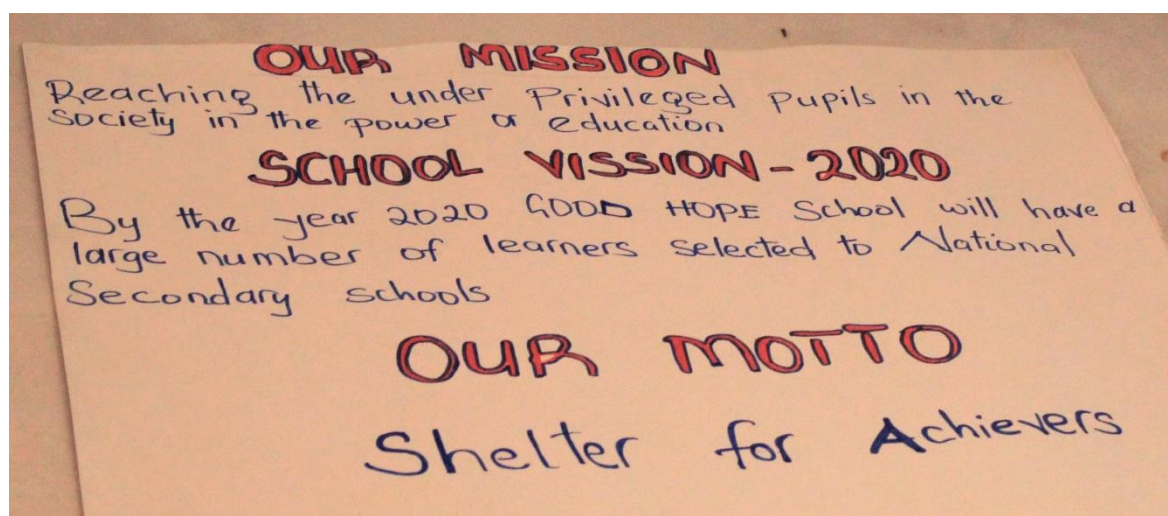 OUR MISSION
Reaching the under Privileged pupils in the
society in the power or education
SCHOOL VISSION - 2020
By the year 2020 GOOD HOPE School will have a
large number of learners selected to National
Secondary schools
OUR MOTTO
Shelter for Achievers